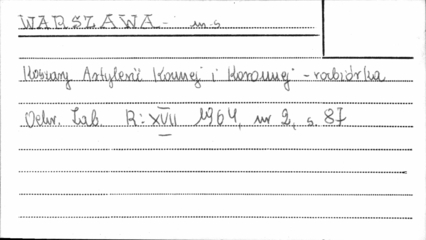 WARSZAWA - m.s
Koszary Artylerii Konnej i Koronnej - rozbiórka
Ochr. Zab. R: XVII 1964, nr 2, s. 87